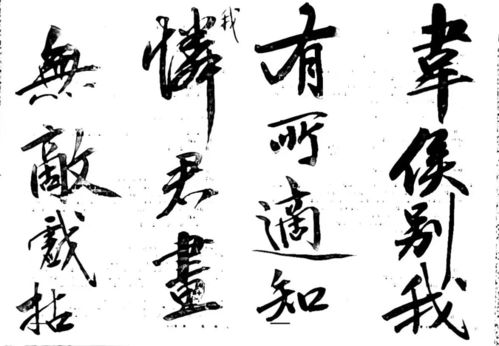 韋侯別我
有所適知
我憐君畫
無敵戲拈